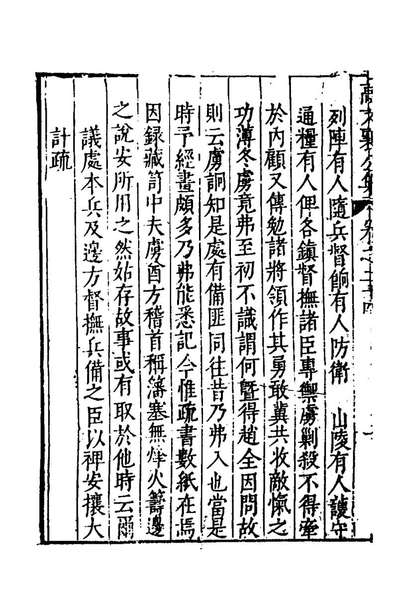 列陣有人隨兵督餉有人防衛　山陵有人護守
通糧有人俾各鎮督撫諸臣專禦虜剿殺不得牽
於內顧又傳勉諸將領作其勇敢冀共收敵愾之
功溥冬虜竟弗至初不識謂何暨得趙全因問故
則云虜詗知是處有備匪同往昔乃弗入也當是
時予經畫頗多乃弗能悉記今惟疏書數紙在焉
因錄藏笥中夫虜酋方稽首稱藩塞無烽火籌邊
之說安所用之然姑存故事或有取於他時云爾
議處本兵及邊方督撫兵備之臣以裨安攘大
計疏